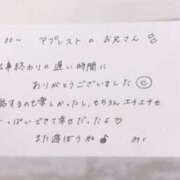 アプレスト の お兄さん
仕事終わりの遅い時間に
ありがとうございました
するのも楽しかったし、もちろん エチエチも
っぱいできて幸せだったよ♡
また遊ぼうね♪